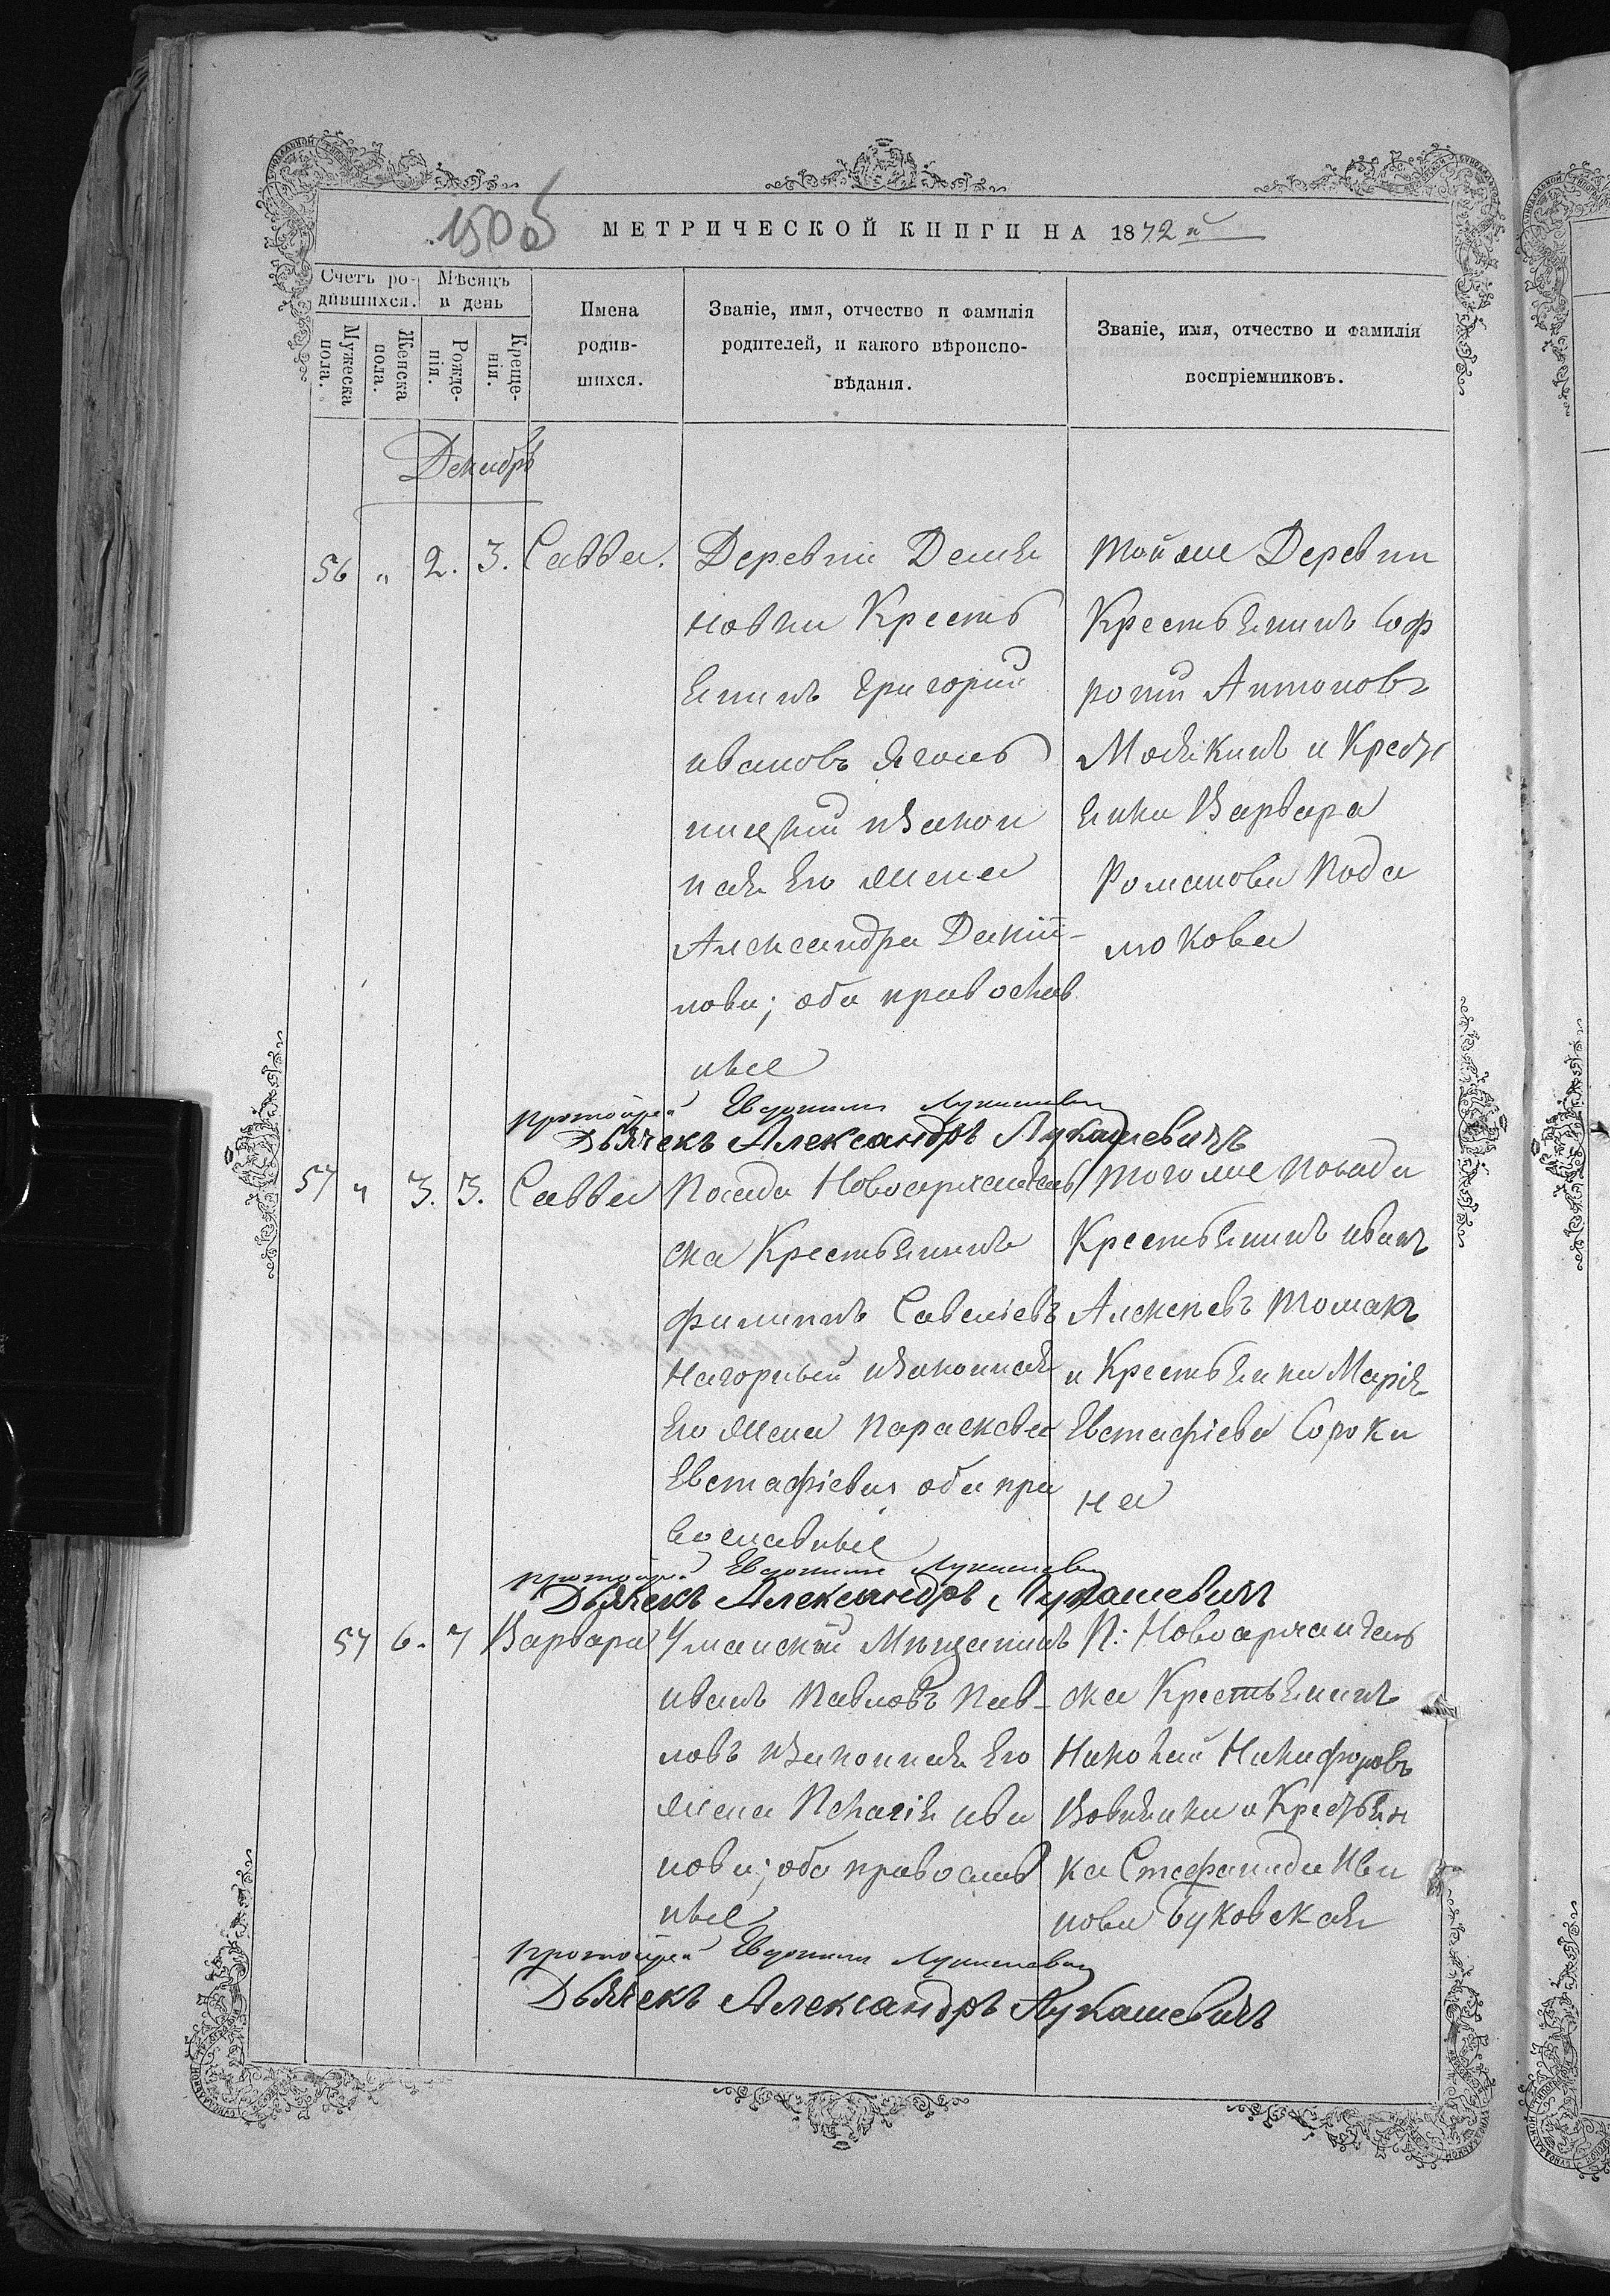 150об
МЕТРИЧЕСКОЙ КНИГИ НА 1872й
Счетъ ро-
дившихся.
Мѣсяцъ
и день
Мужеска
пола.
Женска
пола.
Рожде-
нія.
Креще-
нія.
Имена
родив-
шихся.
Званіе, имя, отчество и фамилія
родителей, и какого вѣроиспо-
вѣданія.
Званіе, имя, отчество и фамилія
воспріемниковъ.
Декабрь
56 " 2. 3. Савва.
Деревни Демя
новки Кресть
янинъ Григорій
Ивановъ
изакон
ная Его Жена
Александра Даніи-
лова; оба православ
ные
Той же Деревни
Крестьянинъ Соф
роній Антоновъ
и Крест
янка Варвара
Романова Пода
люкова
Протоіерей Евдокимъ Лукашевич
Дьячекъ Александръ Лукашевичъ
57 " 3. 3. Савва
Посада Новоархангель
ска Крестьянинъ
Филиппъ Савеліевъ
Нагорный изаконная
Его Жена Параскева
Евстафіева оба пра
вославные
Тогоже посада
Крестьянинъ Иванъ
Алексѣевъ Томакъ
и Крестьянка Марія
Евстафіева Сороки
на
Протоіерей Евдокимъ Лукашевич
Дьячекъ Александръ Лукашевичъ
57 6. 7 Варвара
Уманскій Мѣщанинъ
Иванъ Павловъ Пав-
ловъ изаконная Его
Жена Пелагія Ива
нова; оба православ
ные
П: Новоархангель
ска Крестьянинъ
Николай Никифоровъ
и Крестьян
ка Стефанида Ива
нова Буковская
Протоіерей Евдокимъ Лукашевич
Дьячекъ Александръ Лукашевичъ